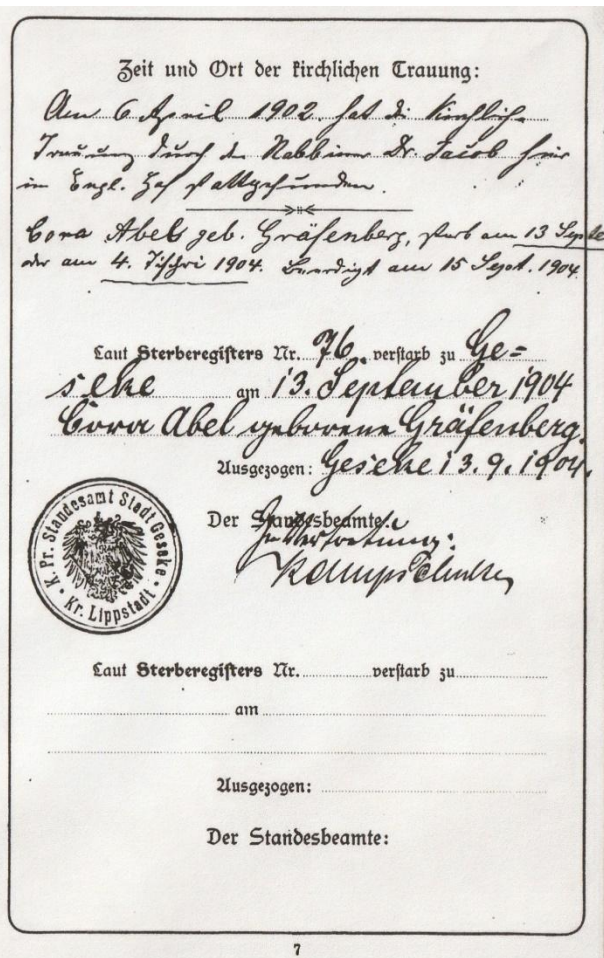 Zeit und Ort der kirchlichen Trauung:
Am 6 April 1902 hat die kirchliche
Trauung durch den Rabbiner Dr. Jacob hier
im Engl. Hof stattgefunden.
Cora Abels geb. Gräfenberg, starb am 13 Septe
oder am 4. Tischri 1904. Beerdigt am 15 Sept. 1904
Laut Sterberegisters Nr. 76. verstarb zu Ge=
seke am 13. September 1904
Cora Abel geborene Gräfenberg.
Ausgezogen: Geseke 13.9.1904.
Der Standesbeamte:
In Vertretung:
K. Pr. Standesamt Stadt Geseke • Kr. Lippstadt •
Laut Sterberegisters Nr. verstarb zu
am
Ausgezogen:
Der Standesbeamte:
7